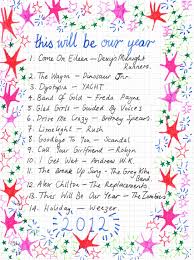 this will be our year
1. Come On Eileen - Dexy's Midnight
Runners.
2. The Wagon - Dinosaur Jnr.
3. Dystopia - YACHT
4. Band Of Gold - Freda Payne
5. Glad Girls - Guided By Voices
6. Drive Me Crazy - Britney Spears
7. Limelight - Rush
8. Goodbye To You - Scandal
9. Call Your Girlfriend - Robyn
10. I Get Wet - Andrew W.K.
11. The Break Up Song - The Greg Kihn
Band.
12. Alex Chilton - The Replacements
13. This Will Be Our Year - The Zombies
14. Holiday - Weezer
2012